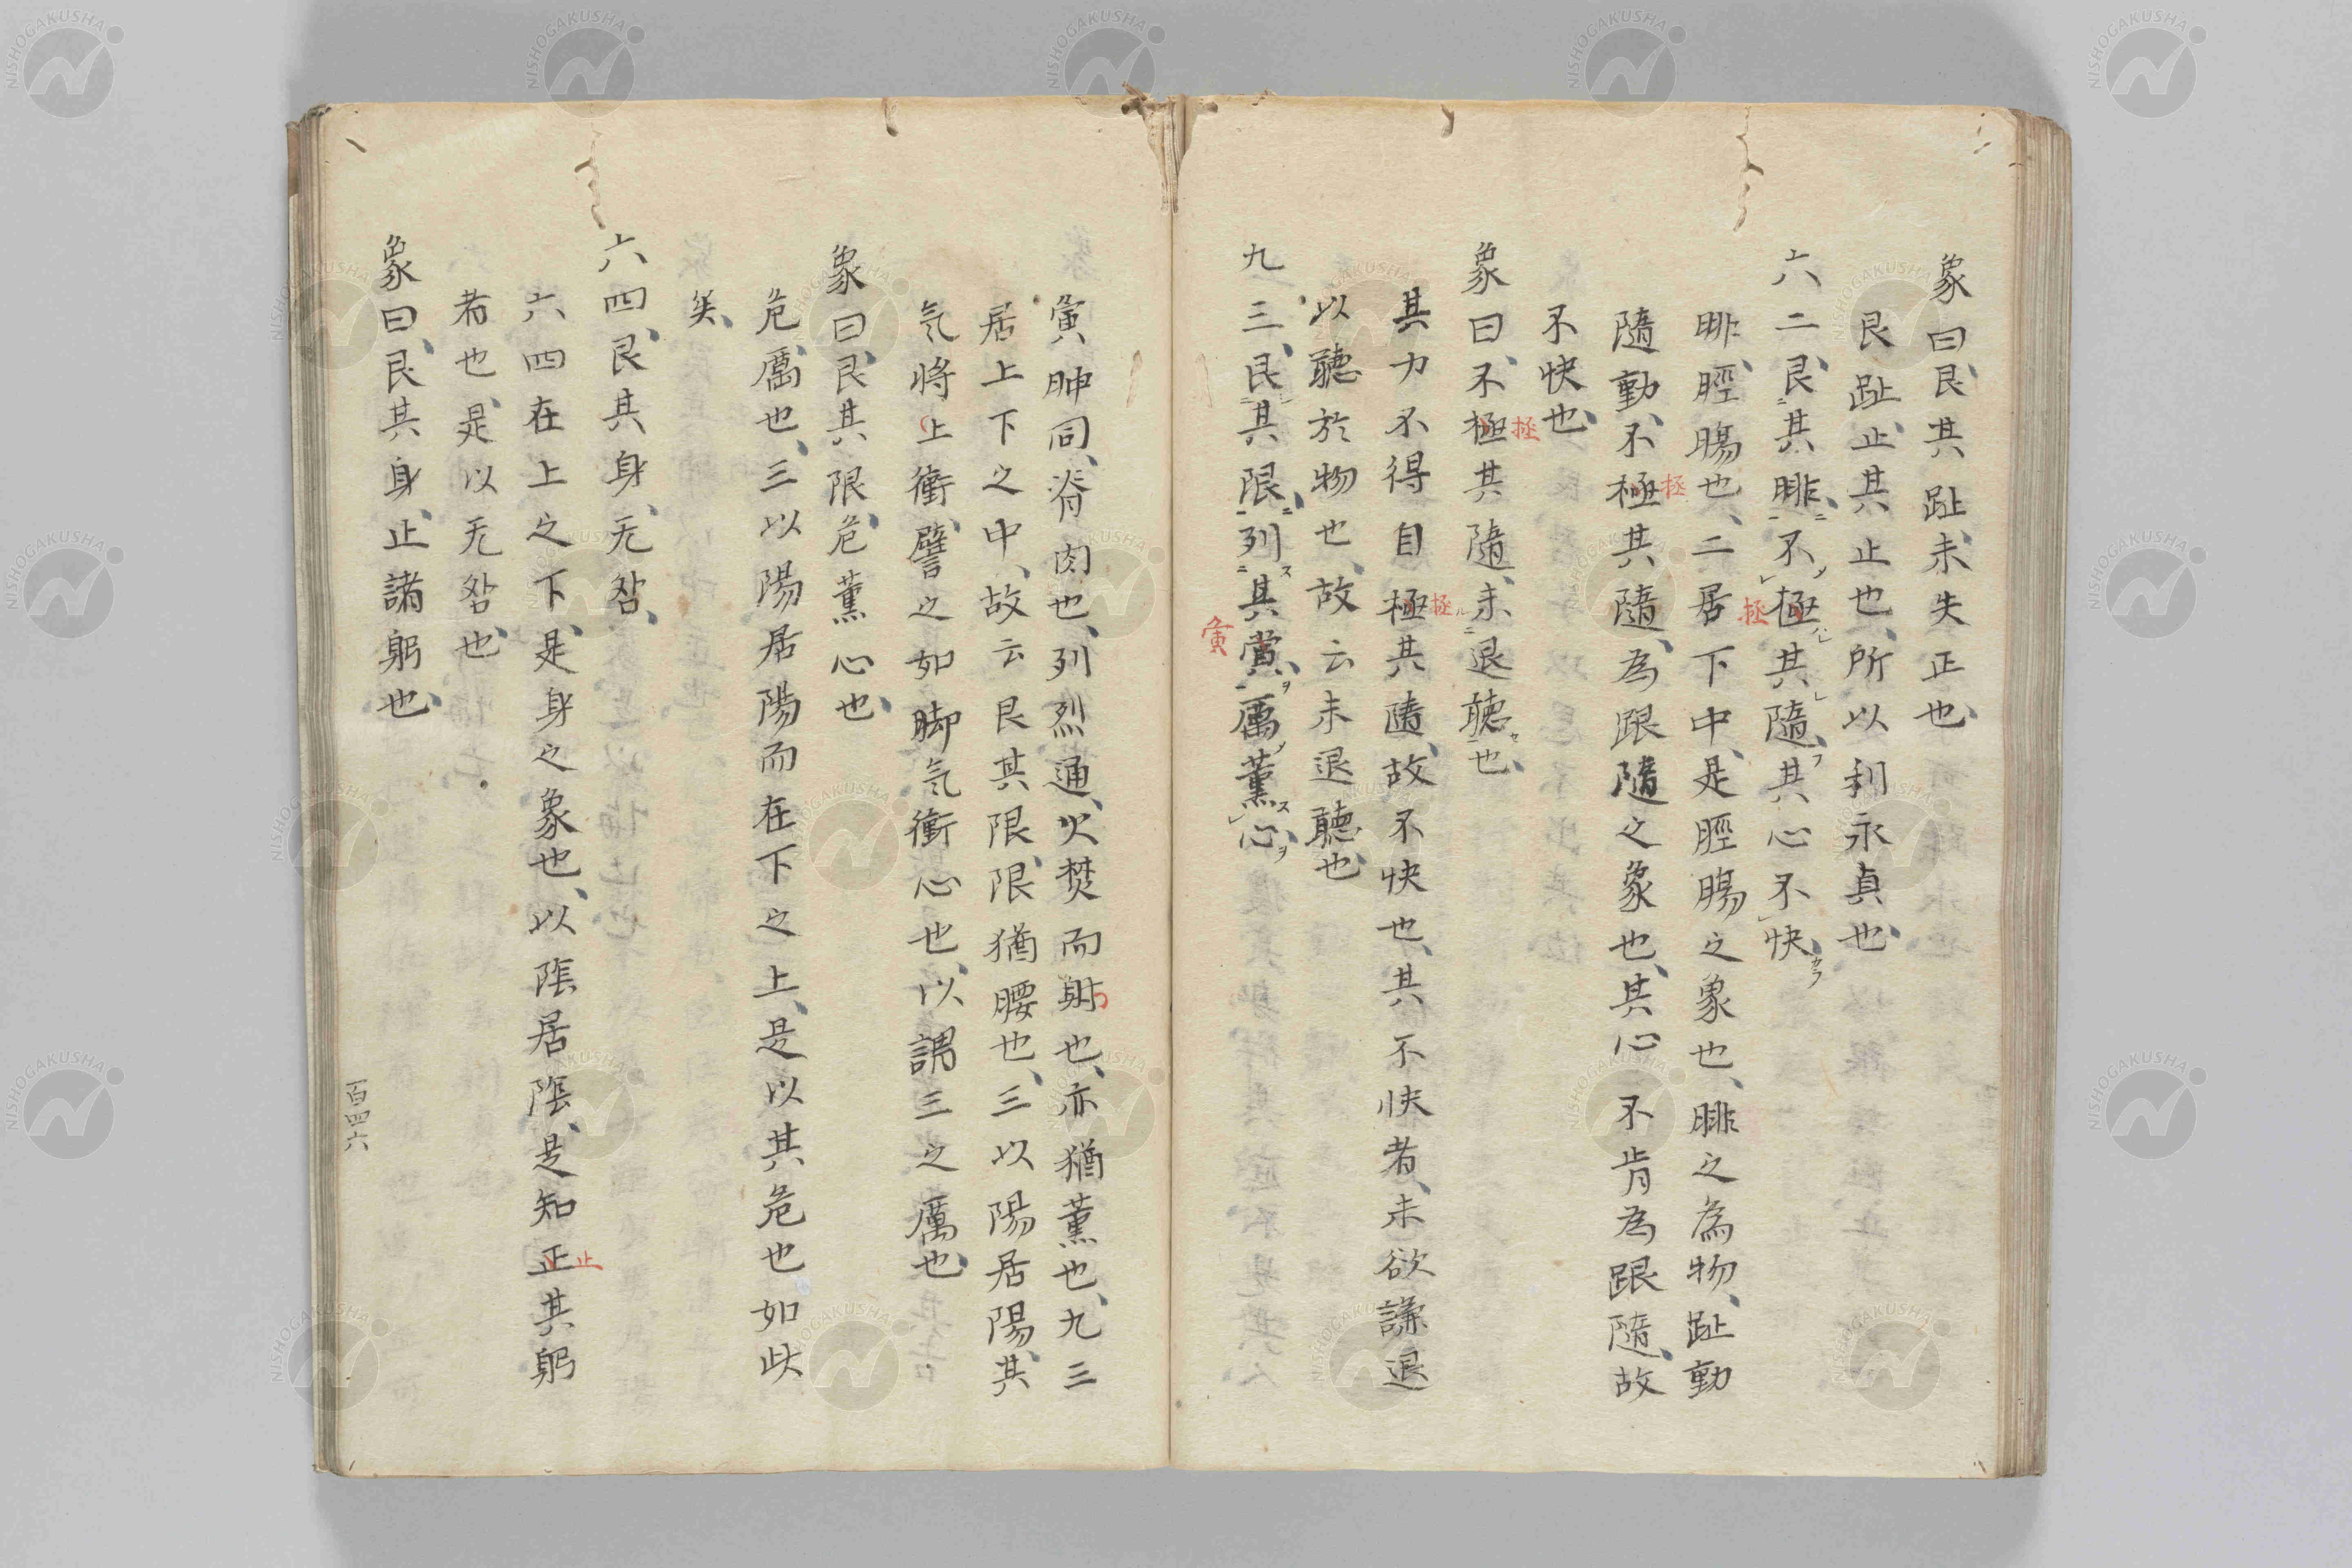 象曰、艮其趾、未失正也、
艮趾、止其止也、所以利永貞也、
六二、艮其腓、不極其隨、其心不快、
腓、脛腸也、二居下中、是脛腸之象也、腓之為物、趾動
隨動、不極其隨、為跟隨之象也、其心不肯為跟隨、故
不快也、
象曰、不極其隨、未退聽也、
其力不得自極其隨、故不快也、其不快者、未欲謙退
以聽於物也、故云未退聽也、
九三、艮其限、列其夤、厲薰心、
夤胂同、脊肉也、列烈通、火焚而也、亦猶薰也、九三
居上下之中、故云艮其限、限猶腰也、三以陽居陽、其
気將上衝、譬之如脚気衝心也、以謂三之厲也、
象曰、艮其限、危薰心也、
危、厲也、三以陽居陽而在下之上、是以其危也如此
矣、
六四、艮其身、无咎、
六四在上之下、是身之象也、以陰居陰、是知正其躬
者也、是以无咎也、
象曰、艮其身、止諸躬也、
極
極
極
極
夤
止
百四六
NISHOGAKUSHA